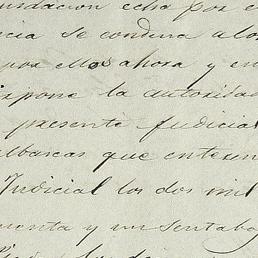 undacion echa por e
cia se condena a los
por Mos ahora y en
ispone la autorida
presente Judicial
albaceas que enteren
Judicial los dos mil
enta y un sentabo